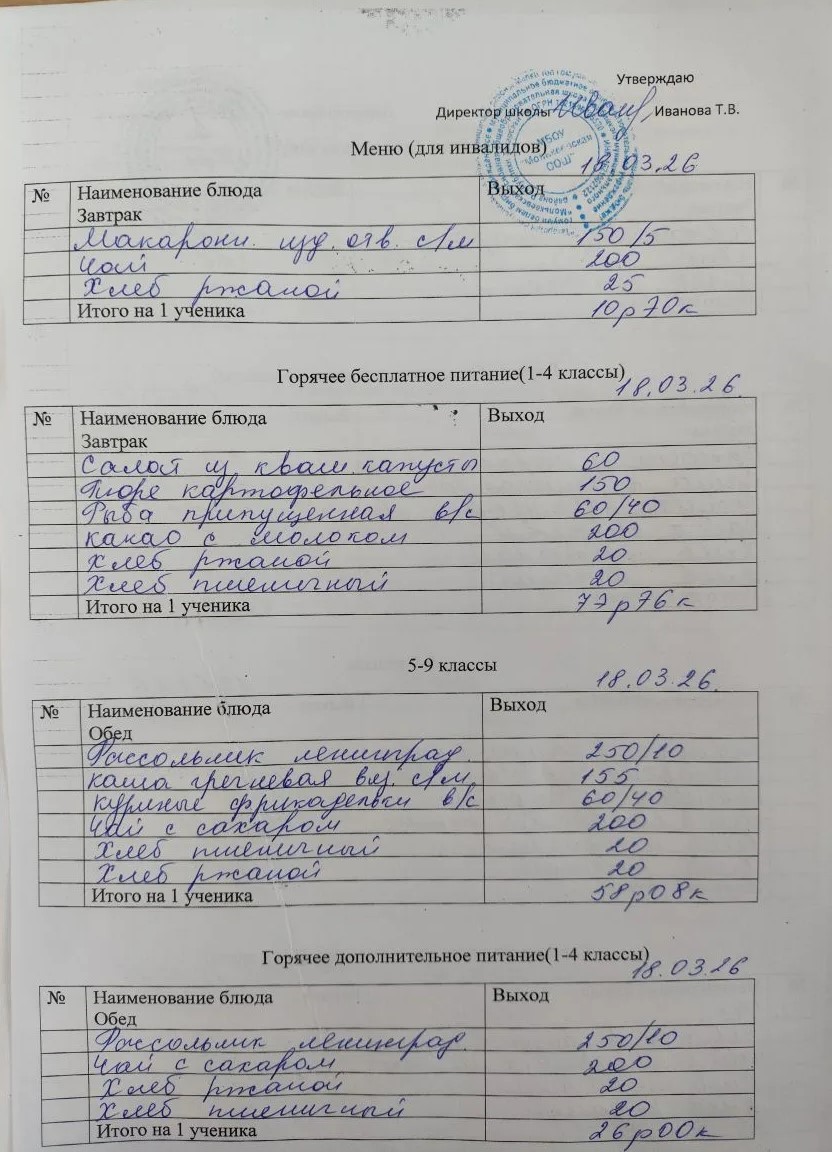 Утверждаю
Директор школы Иванова Т.В.
МБОУ
СОШ"
Меню (для инвалидов)
18.03.26
№ Наименование блюда Выход
Завтрак
Макарон. изд. отв. с/м 150/5
Чай 200
Хлеб ржаной 25
Итого на 1 ученика 10р70к
Горячее бесплатное питание(1-4 классы) 18.03.26.
№ Наименование блюда Выход
Завтрак
Салат из кваш. капусты 60
Пюре картофельное 150
Рыба припущенная в/с 60/40
какао с молоком 200
Хлеб ржаной 20
Хлеб пшеничный 20
Итого на 1 ученика 77р76к
5-9 классы
18.03.26.
№ Наименование блюда Выход
Обед
Рассольник ленинград. 250/10
каша гречневая вяз. с/м. 155
куриные фрикадельки в/с 60/40
Чай с сахаром 200
Хлеб пшеничный 20
Хлеб ржаной 20
Итого на 1 ученика 58р08к
Горячее дополнительное питание(1-4 классы)
18.03.26
№ Наименование блюда Выход
Обед
Рассольник ленинград. 250/10
Чай с сахаром 200
Хлеб ржаной 20
Хлеб пшеничный 20
Итого на 1 ученика 26р00к